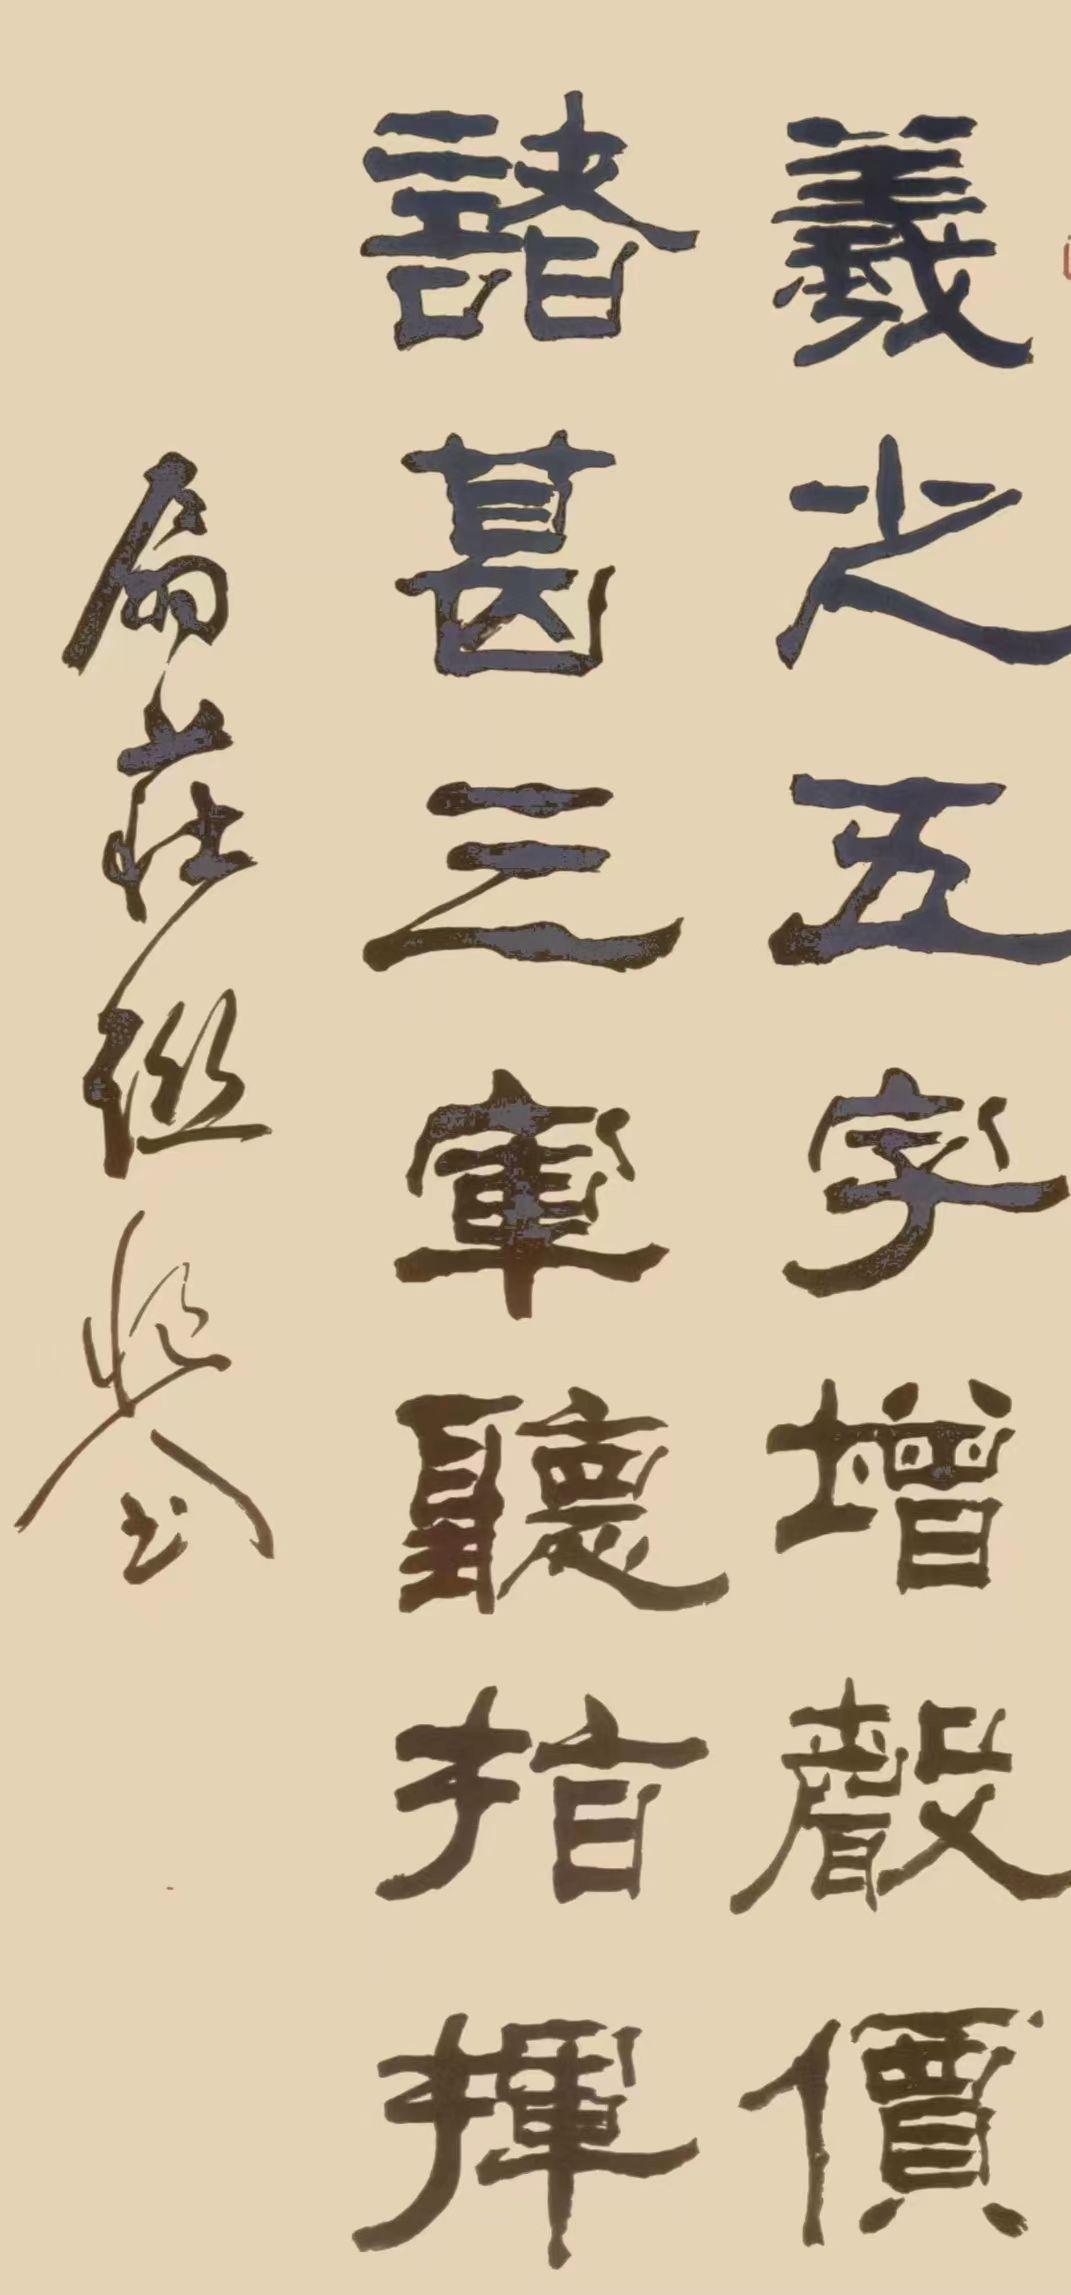 羲之五字增聲價
諸葛三軍聽指揮
扇莊